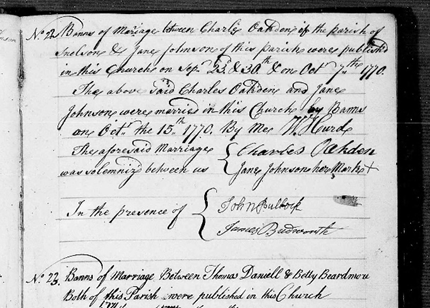 No. 22. Banns of Marriage between Charles Oakden of the Parish of
Snelson & Jane Johnson of this Parish were published
in this Church on Sep. 23d & 30th & on Oct 7th 1770.
The above said Charles Oakden and Jane
Johnson were married in this Church by Banns
on Oct. the 15th 1770, By Me W Hurd
The aforesaid Marriage { Charles Oakden
was solemniz'd between us Jane Johnson her Mark +
In the presence of { John Bullock
James Budworth
No. 23. Banns of Marriage Between Thomas Daniell & Betty Beardmou
Both of this Parish were published in this Church